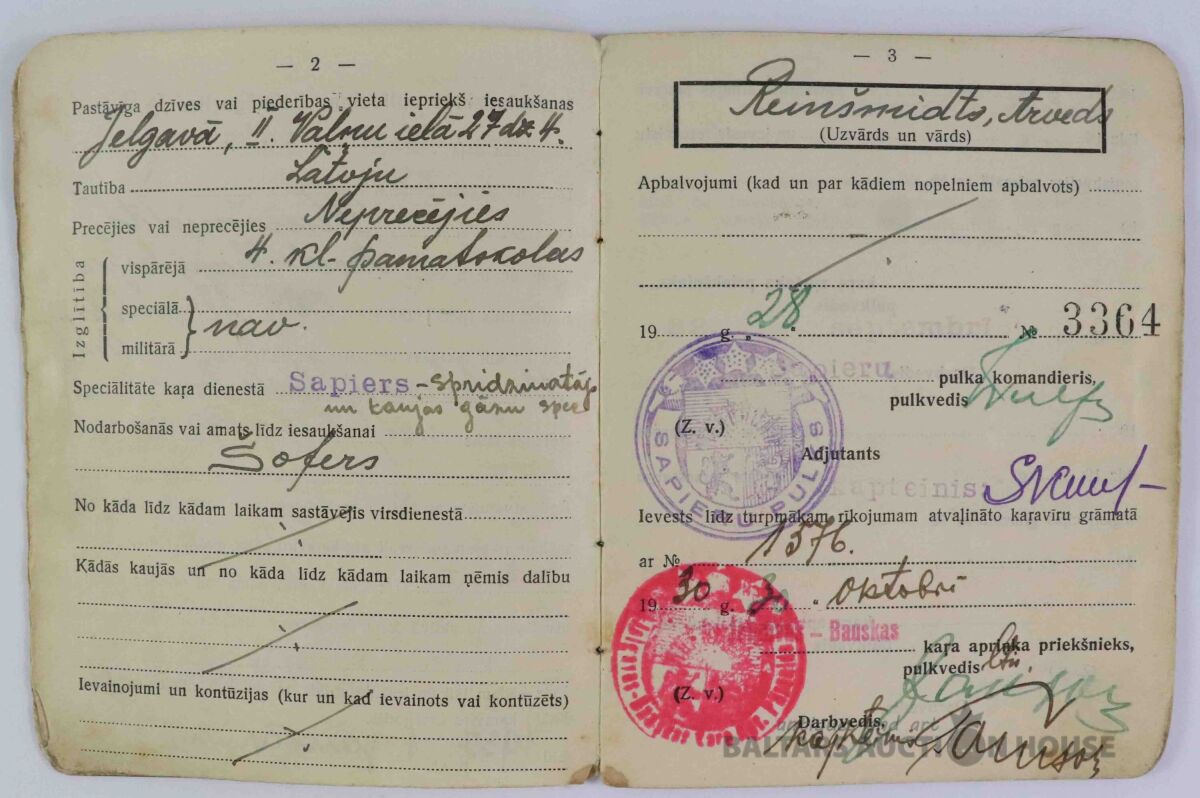 — 2 —
Pastāvīga dzīves vai piederības vieta iepriekš iesaukšanas
Jelgavā, II. Valņu ielā 27 dz. 4.
Tautība Latvju
Precējies vai neprecējies Neprecējies
Izglītība
vispārējā 4. kl. pamatskolas
speciālā
militārā
nav.
Speciālitāte kaŗa dienestā Sapiers - spridzinatājs
un kaujas gāzu spec
Nodarbošanās vai amats līdz iesaukšanai
Šofers
No kāda līdz kādam laikam sastāvējis virsdienestā
Kādās kaujās un no kāda līdz kādam laikam ņēmis dalību
Ievainojumi un kontūzijas (kur un kad ievainots vai kontūzēts)
— 3 —
Reinšmidts, Arveds
(Uzvārds un vārds)
Apbalvojumi (kad un par kādiem nopelniem apbalvots)
19 g. „28" № 3364
Sapieru pulka komandieris,
pulkvedis
(Z. v.)
SAPIERU PULKS
Adjutants
Kapteinis
Ievests līdz turpmākam rīkojumam atvaļināto karavīru grāmatā
ar № 1576.
1930 g. 30. oktobrī
– Bauskas
kara apriņķa priekšnieks,
pulkvedis ltn.
(Z. v.)
Darbvedis,
BALTARS AUCTION HOUSE